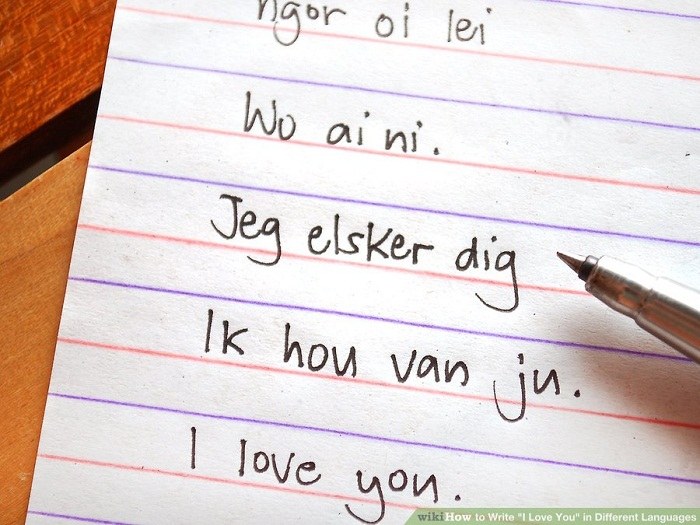 Ngor oi lei
Wo ai ni.
Jeg elsker dig
Ik hou van ju.
I love you.
wikiHow to Write "I Love You" in Different Languages